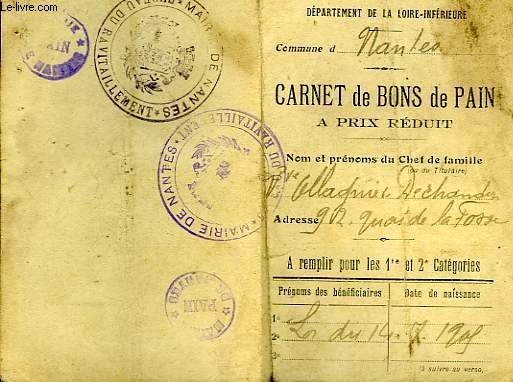 www.le-livre.com
MAIRIE DE NANTES
BUREAU DU RAVITAILLEMENT
PAIN
NANTES
MAIRIE DE NANTES
DU RAVITAILLEMENT
PAIN
DÉPARTEMENT DE LA LOIRE-INFÉRIEURE
Commune d Nantes
CARNET de BONS de PAIN
A PRIX RÉDUIT
Nom et prénoms du Chef de famille
(ou du Titulaire)
Adresse 92. quai de la Fosse
A remplir pour les 1re et 2e Catégories
Prénoms des bénéficiaires Date de naissance
1° Loi du 14. 7. 1905
2°
3°
(à suivre au verso)